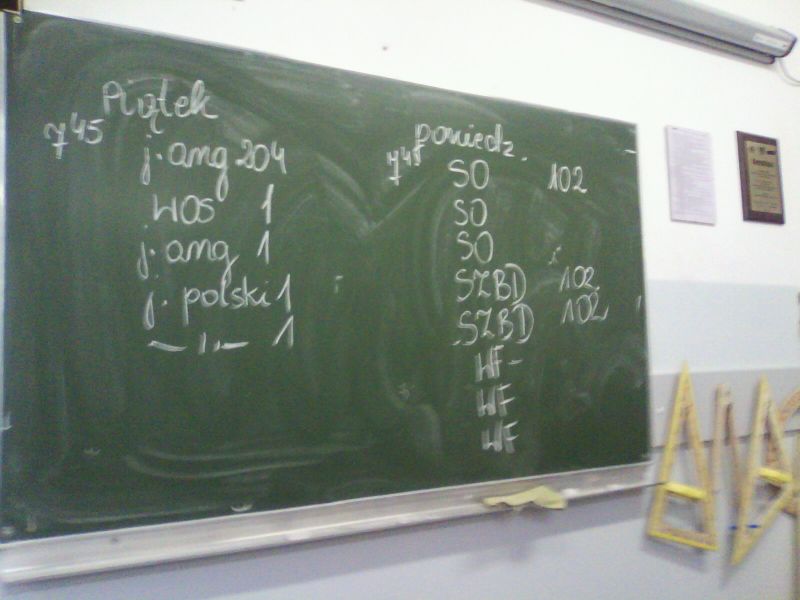 Piątek
7⁴⁵ j. ang 204
WOS 1
j. ang 1
j. polski 1
— ı ı — 1
poniedz.
7⁴⁵ SO 102
SO
SO
SZBD 102
SZBD 102
WF -
WF
WF